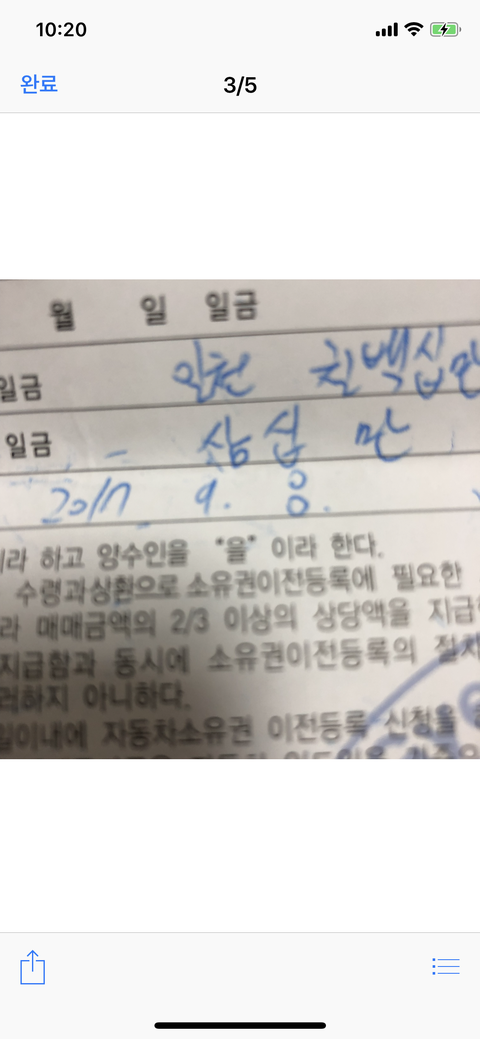 10:20
완료
3/5
월 일 일금
일금 일천 칠백십만
일금 삼십 만
2017 9. 8.
이라 하고 양수인을 "을" 이라 한다.
수령과상환으로 소유권이전등록에 필요한
라 매매금액의 2/3 이상의 상당액을 지급
지급함과 동시에 소유권이전등록의 절차
러하지 아니하다.
일이내에 자동차소유권 이전등록 신청을